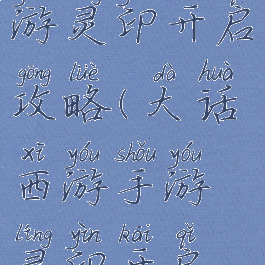 游灵印开启
gōng lüè dà huà
攻略(大话
xī yóu shǒu yóu
西游手游
líng yìn kāi qǐ
灵印开启